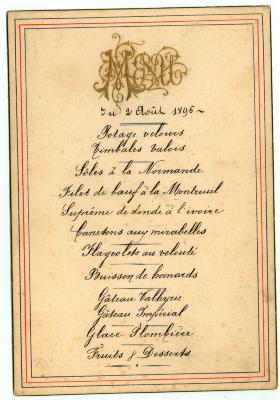 Menu
Du 2 Août 1896
Potage velours
Timbales valois
Sôles à la Normande
Filet de bœuf à la Montreuil
Suprême de dinde à l'ivoire
Canetons aux mirabelles
Flageolets au velouté
Buisson de homards
Gâteau Valkyrie
Gâteau Impérial
Glace Plombière
Fruits & Desserts